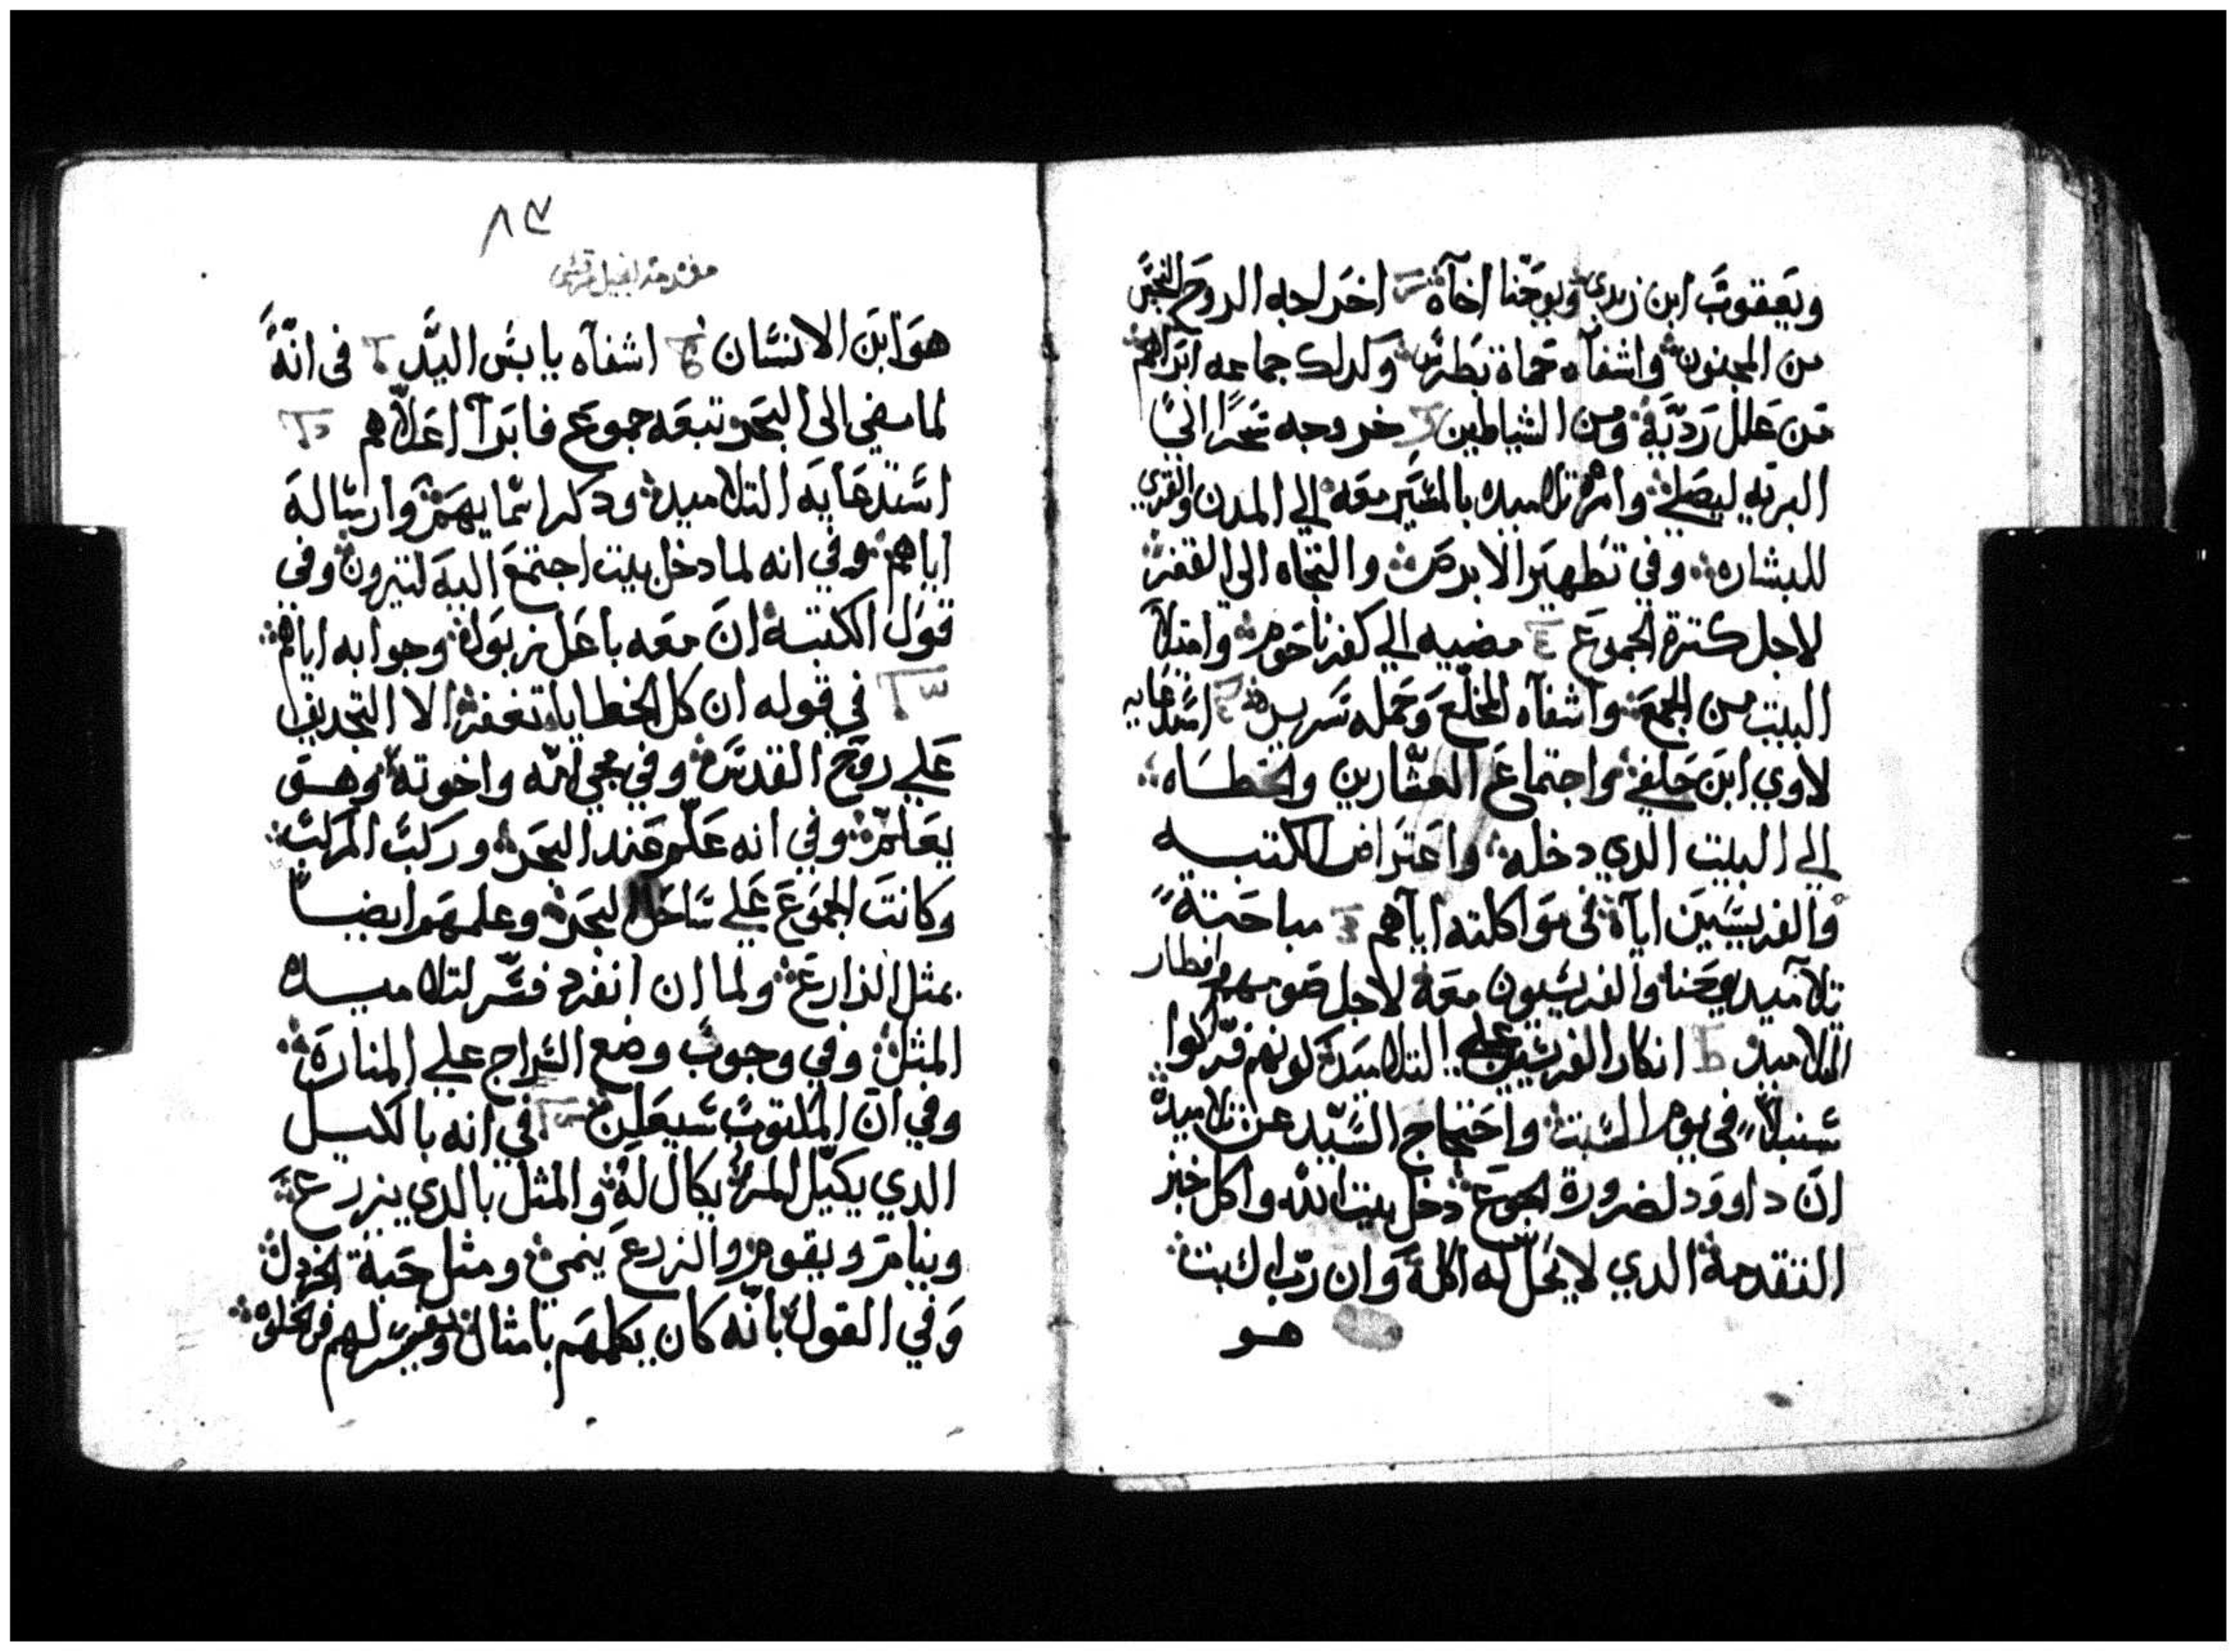 ويعقوب ابن زبدي ويوحنا اخاه اخراجه الروح النجس
من المجنون واشفاه حماة بطرس وكدلك جماعه ابراهم
من علل رديه ومن الشياطين خروجه سحرا الي
البريه ليصلي وامره تلاميده بالمسير معه الي المدن والقري
للبشاره وفي تطهير الابرص والتجاه الي القفر
لاجل كترة الجموع مضيه الي كفرناحوم وامتلا
البيت من الجمع واشفاه المخلع وحمله سريره استدعايه
لاوي ابن حلفي واجتماع العشارين والخطاه
الي البيت الدي دخله واعتراض الكتبه
والفريسيين اياه في مواكلته اياهم مباحتة
تلاميد يوحنا والفريسيون معه لاجل صومهم وافطار
التلاميد انكار الفريسيين علي التلاميد كونهم فركوا
سنبلا في يوم السبت واحتجاج السيد عن تلاميده
ان داوود لضرورة الجوع دخل بيت الله واكل خبز
التقدمة الدي لا يحل له اكله وان رب السبت
هو
٨٣
مقدمة انجيل مرقس
هو ابن الانسان اشفاه يابس اليد في انه
لما مضي الي البحر وتبعه جموع فابرا اعلاهم
استدعايه التلاميد ودكر اسمايهم وارساله
اياهم وفي انه لما دخل بيت اجتمع اليه كتيرون وفي
قول الكتبة ان معه باعل زبول وجوابه اياهم
في قوله ان كل الخطايا تغفر الا التجديف
علي روح القدس وفي مجي امه واخوته وهو
يعلم وفي انه علم عند البحر وركب المركب
وكانت الجموع علي ساحل البحر وعلمهم ايضا
بمثل الزارع ولما ان انفرد فسر لتلاميده
المثل وفي وجوب وضع السراج علي المنارة
وفي ان المكتوب سيعلن في انه بالكيل
الدي يكيل المرء يكال له والمثل بالدي يزرع
وينام ويقوم والزرع ينمي ومثل حبة الخردل
وفي القول بانه كان يكلمهم بامثال ويفسر لهم في خلوه